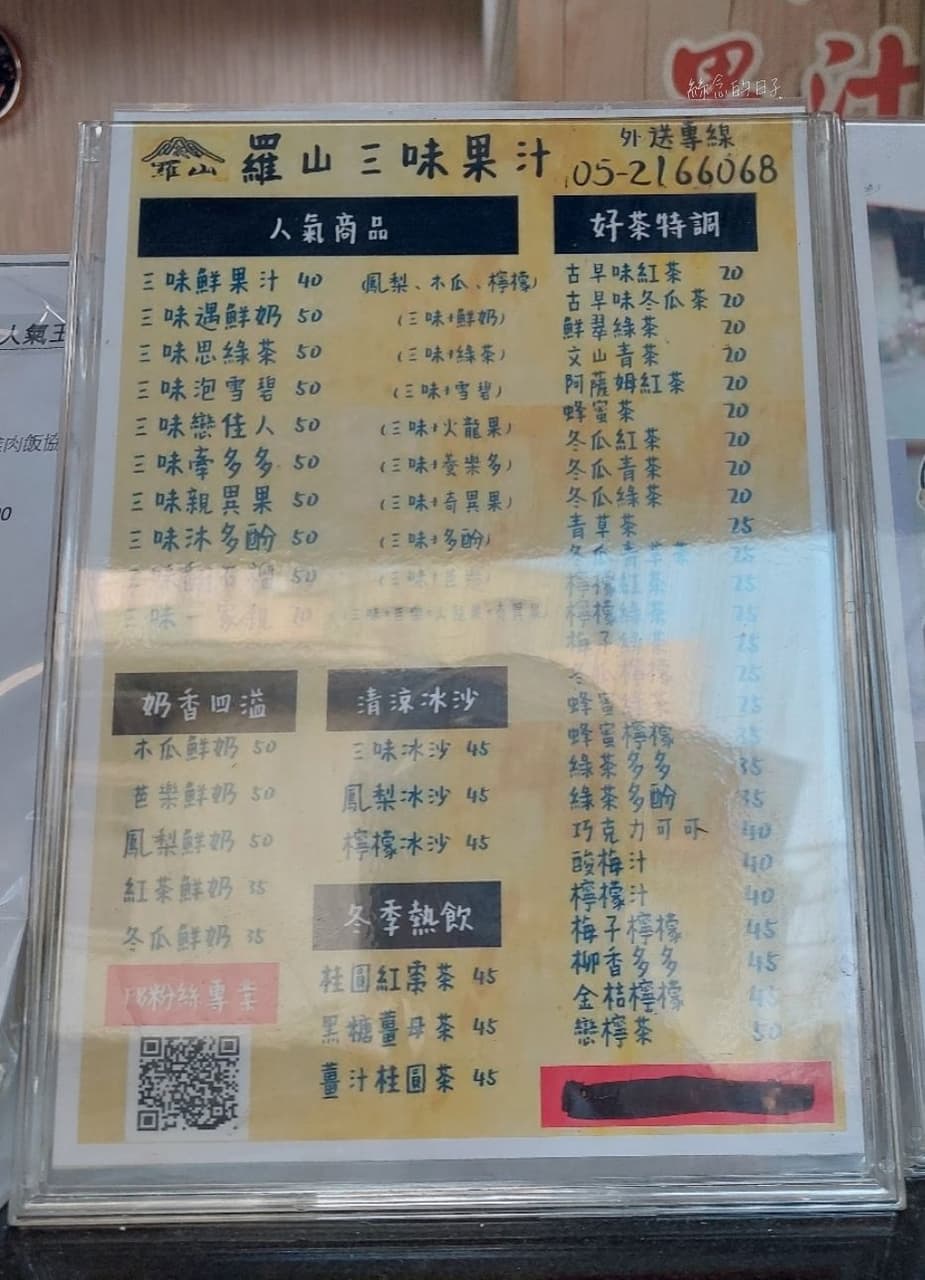 果汁
絲念的日子
羅山
羅山三味果汁
外送專線
05-2166068
人氣商品
三味鮮果汁 40 (鳳梨、木瓜、檸檬)
三味遇鮮奶 50 (三味+鮮奶)
三味思綠茶 50 (三味+綠茶)
三味泡雪碧 50 (三味+雪碧)
三味戀佳人 50 (三味+火龍果)
三味牽多多 50 (三味+養樂多)
三味親異果 50 (三味+奇異果)
三味沐多酚 50 (三味+多酚)
50 (三味+芭樂)
三味一家親 70 (三味+芭樂+火龍果+奇異果)
好茶特調
古早味紅茶 20
古早味冬瓜茶 20
鮮翠綠茶 20
文山青茶 20
阿薩姆紅茶 20
蜂蜜茶 20
冬瓜紅茶 20
冬瓜青茶 20
冬瓜綠茶 20
青草茶 25
冬瓜青草茶 25
檸檬紅茶 25
檸檬綠茶 25
梅子綠茶 25
冬瓜檸檬 25
蜂蜜綠茶 25
蜂蜜檸檬 35
綠茶多多 35
綠茶多酚 35
巧克力可可 40
酸梅汁 40
檸檬汁 40
梅子檸檬 45
柳香多多 45
金桔檸檬 45
戀檸茶 50
奶香四溢
木瓜鮮奶 50
芭樂鮮奶 50
鳳梨鮮奶 50
紅茶鮮奶 35
冬瓜鮮奶 35
清涼冰沙
三味冰沙 45
鳳梨冰沙 45
檸檬冰沙 45
冬季熱飲
桂圓紅棗茶 45
黑糖薑母茶 45
薑汁桂圓茶 45
FB粉絲專業
人氣王
肉飯